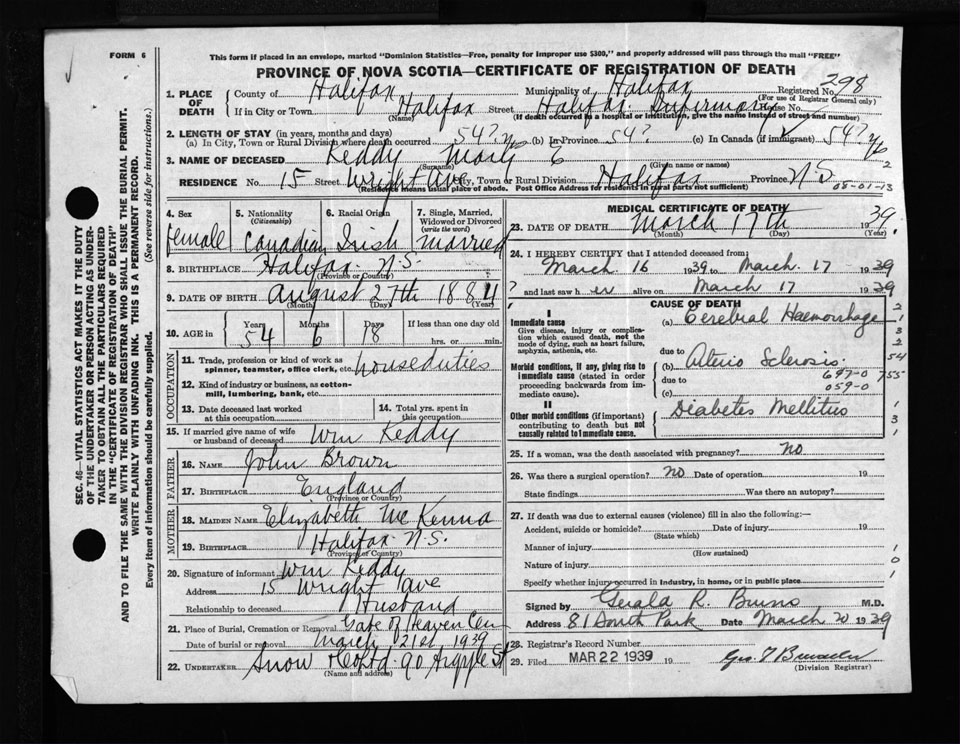 FORM 6
This form if placed in an envelope, marked "Dominion Statistics—Free, penalty for improper use $300," and properly addressed will pass through the mail "FREE"
PROVINCE OF NOVA SCOTIA—CERTIFICATE OF REGISTRATION OF DEATH
298
1. PLACE OF DEATH County of Halifax Municipality of Halifax Registered No.
(For use of Registrar General only)
If in City or Town Halifax Street Halifax Infirmary House No.
(Name) (If death occurred in a hospital or institution, give the name instead of street and number)
2. LENGTH OF STAY (in years, months and days)
(a) In City, Town or Rural Division where death occurred 54? y (b) In Province 54? (c) In Canada (if immigrant) 54?
3. NAME OF DECEASED Keddy Mary E
(Surname) (Given name or names)
RESIDENCE No. 15 Street Wright Ave City, Town or Rural Division Halifax Province N.S.
Residence means usual place of abode. Post Office Address for residents in rural parts not sufficient)
2
05-01-13
4. Sex female
5. Nationality (Citizenship) Canadian
6. Racial Origin Irish
7. Single, Married, Widowed or Divorced (write the word) married
8. BIRTHPLACE Halifax N.S.
(Province or Country)
9. DATE OF BIRTH August 27th 1884
(Month) (Day) (Year)
10. AGE in Years 54 Months 6 Days 18 If less than one day old hrs. or min.
OCCUPATION
11. Trade, profession or kind of work as spinner, teamster, office clerk, etc. house duties
12. Kind of industry or business, as cotton-mill, lumbering, bank, etc.
13. Date deceased last worked at this occupation
14. Total yrs. spent in this occupation
15. If married give name of wife or husband of deceased Wm Keddy
FATHER
16. NAME John Brown
17. BIRTHPLACE England
(Province or Country)
MOTHER
18. MAIDEN NAME Elizabeth McKenna
19. BIRTHPLACE Halifax N.S.
(Province or Country)
20. Signature of informant Wm Keddy
Address 15 Wright Ave
Relationship to deceased Husband
21. Place of Burial, Cremation or Removal Gate of Heaven Cem
Date of burial or removal March 21st 1939
22. UNDERTAKER Snow & Co Ltd. 90 Argyle St
(Name and address)
MEDICAL CERTIFICATE OF DEATH
23. DATE OF DEATH March 17th 39.
(Month) (Day) (Year)
24. I HEREBY CERTIFY that I attended deceased from:
March 16 1939 to March. 17 1939
? and last saw her alive on March 17 1939
CAUSE OF DEATH
I
Immediate cause
Give disease, injury or complication which caused death, not the mode of dying, such as heart failure, asphyxia, asthenia, etc.
(a) Cerebral Haemorrhage
due to
Morbid conditions, if any, giving rise to immediate cause (stated in order proceeding backwards from immediate cause).
(b) Alterio Sclerosis.
due to
697-0 755
059-0
(c)
II
Other morbid conditions (if important) contributing to death but not causally related to immediate cause.
Diabetes Mellitus
2
1
3
2
54
1
3
1
25. If a woman, was the death associated with pregnancy? no
26. Was there a surgical operation? NO Date of operation 19
State findings Was there an autopsy?
27. If death was due to external causes (violence) fill in also the following:—
Accident, suicide or homicide? Date of injury 19
(State which)
Manner of injury
(How sustained)
Nature of injury
Specify whether injury occurred in industry, in home, or in public place
1
0
1
Signed by Gerald R. Burns M.D.
Address 81 South Park Date March 20 1939
28. Registrar's Record Number
29. Filed MAR 22 1939 19
(Division Registrar)
SEC. 46—VITAL STATISTICS ACT MAKES IT THE DUTY
OF THE UNDERTAKER OR PERSON ACTING AS UNDERTAKER
TO OBTAIN ALL THE PARTICULARS REQUIRED
IN THE "CERTIFICATE OF REGISTRATION OF DEATH"
AND TO FILE THE SAME WITH THE DIVISION REGISTRAR WHO SHALL ISSUE THE BURIAL PERMIT.
WRITE PLAINLY WITH UNFADING INK. THIS IS A PERMANENT RECORD.
Every item of information should be carefully supplied. (See reverse side for instructions.)